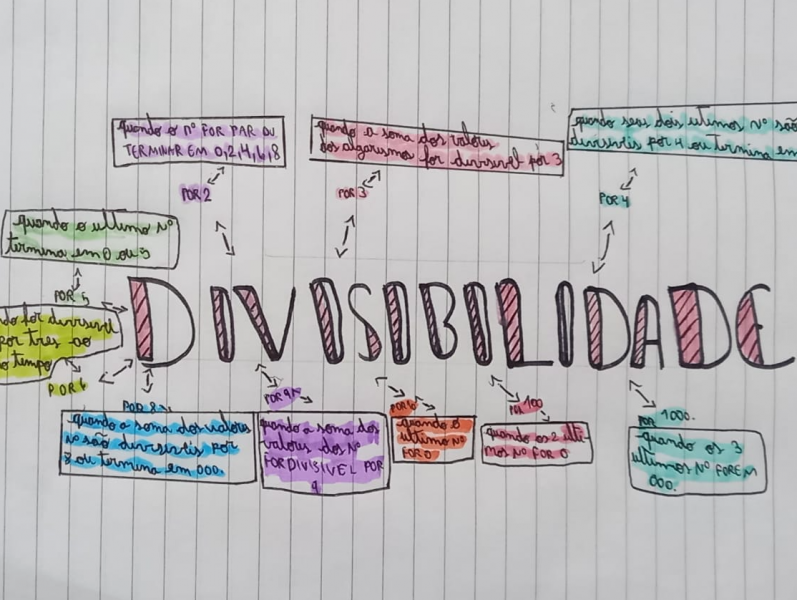 quando o nº FOR PAR OU
TERMINAR EM 0,2,4,6,8
POR 2
quando a soma dos valores
dos algarismos for divisivel por 3
POR 3
quando seus dois utimos Nº são
divisiveis por 4 ou termina em
POR 4
quando o ultimo Nº
termina em 0 ou 5
POR 5
DIVISIBILIDADE
ndo for divisivel
por tres ao
o tempo
POR 6
POR 8
quando a soma dos valores
Nº são divisiveis por
8 ou termina em 000.
POR 9
quando a soma dos
valores dos Nº
FOR DIVISIVEL POR
9
quando o
ultimo Nº
FOR 0
POR 100
quando os 2 ulti-
mos Nº FOR 0
POR 1000.
quando os 3
ultimos Nº FOREM
000.